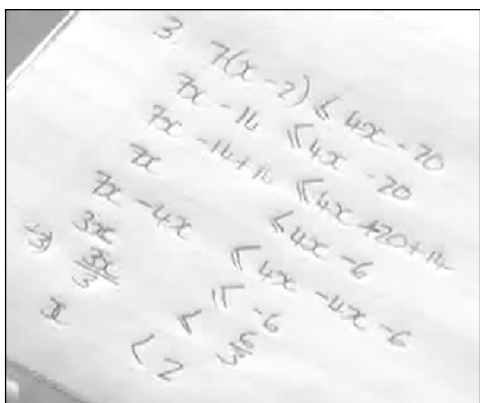 3. 7(x - 2) ≤ 4x - 20
7x - 14 ≤ 4x - 20
7x - 14 + 14 ≤ 4x + 20 + 14
7x ≤ 4x - 6
7x - 4x ≤ 4x - 4x - 6
3x ≤ -6
÷3) 3x/3 < 6/3
x < 2